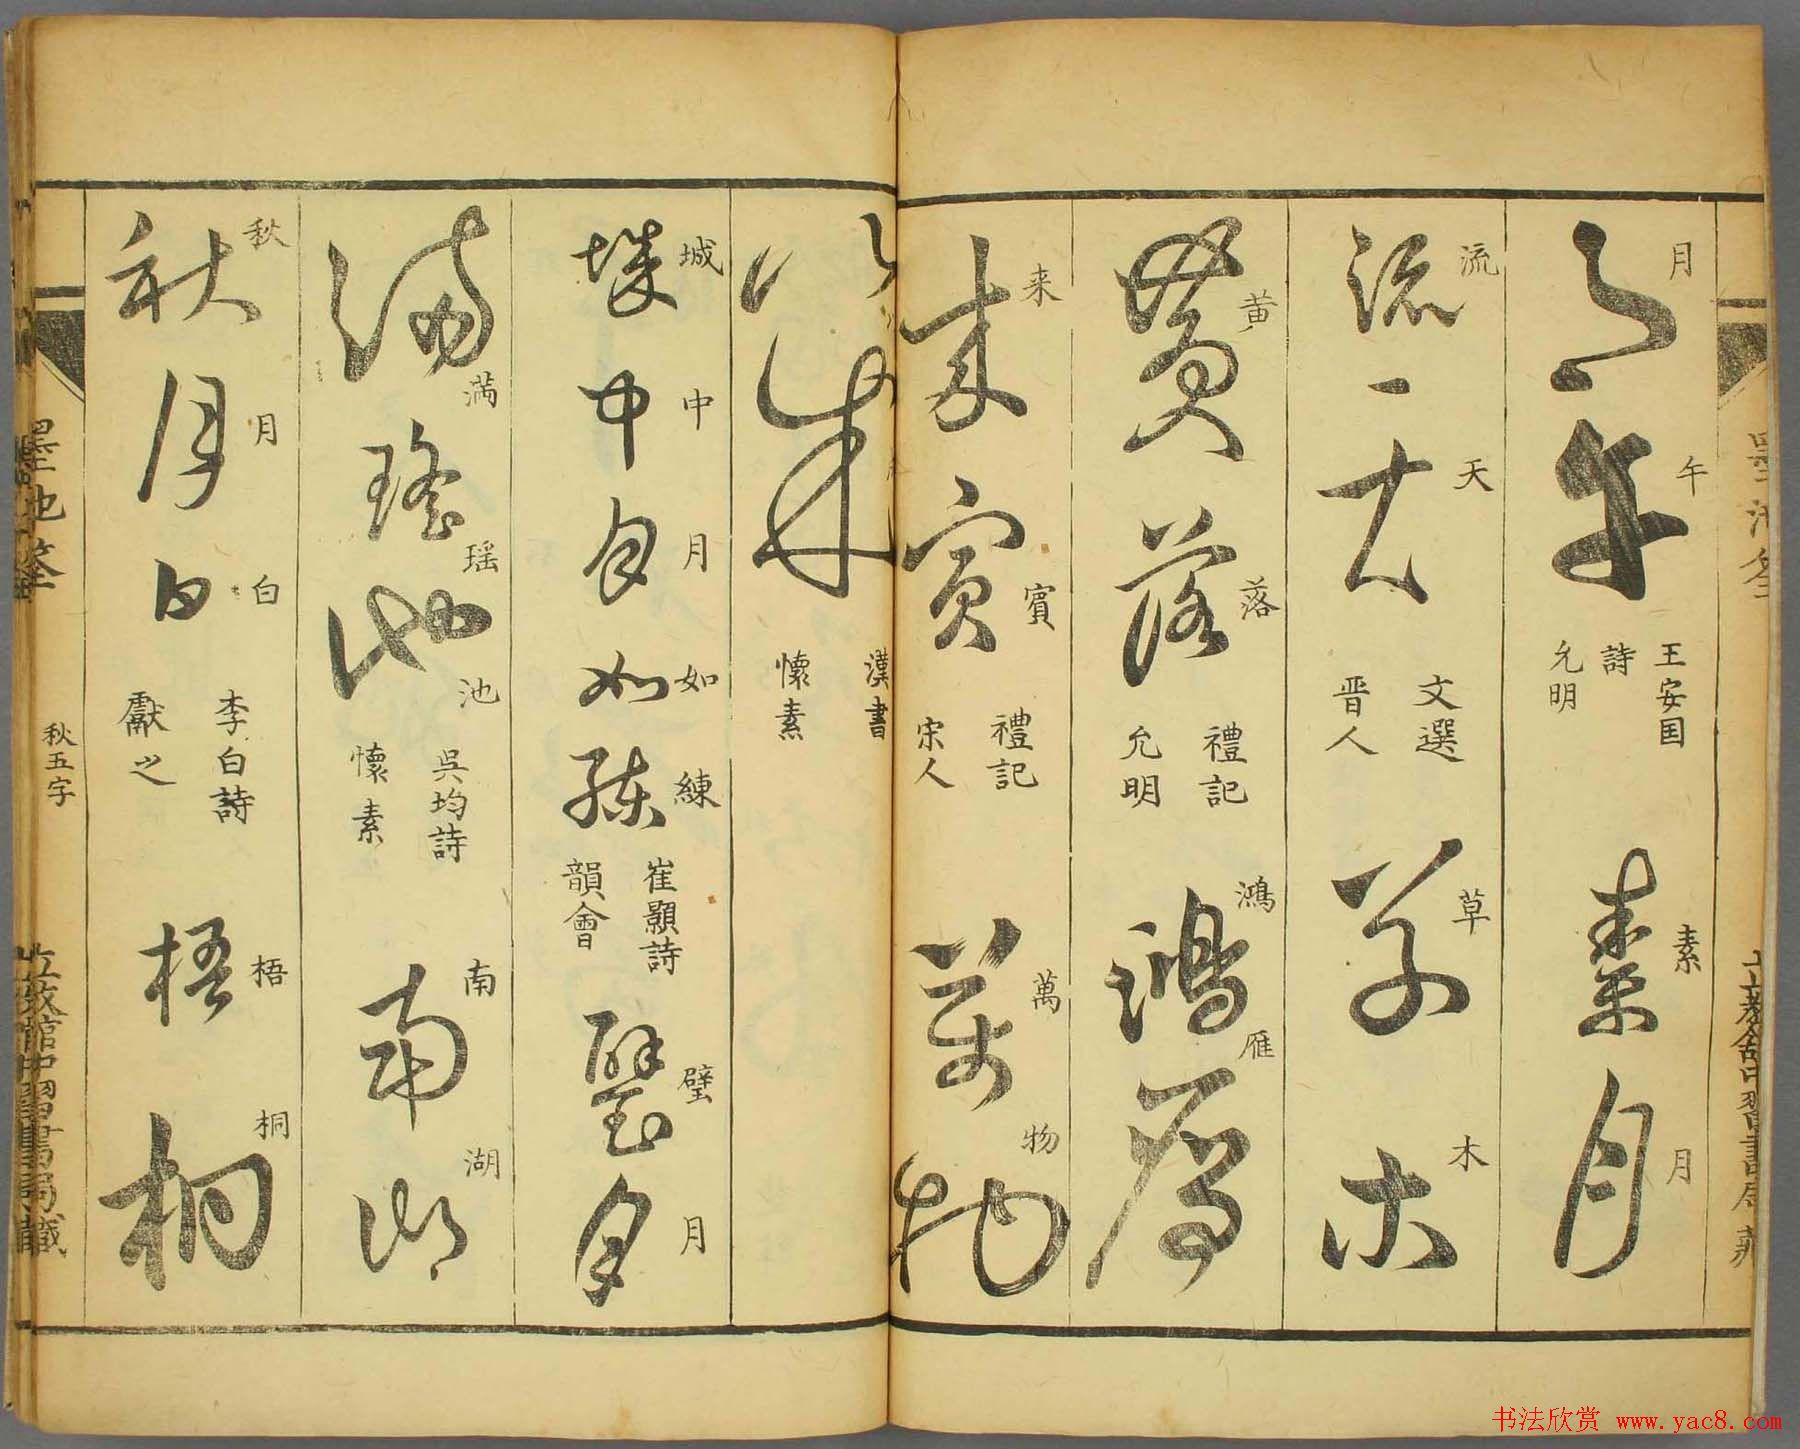 月午 王安国詩 允明 素月
流一天 文選 晋人 草木
黄落 禮記 允明 鴻雁
来賓 禮記 宋人 萬物
漢書 懷素
城中月如練 崔顥詩 韻會 璧月
満瑶池 吳均詩 懷素 南湖
秋月白 李白詩 獻之 梧桐
秋五字
书法欣赏 www.yac8.com